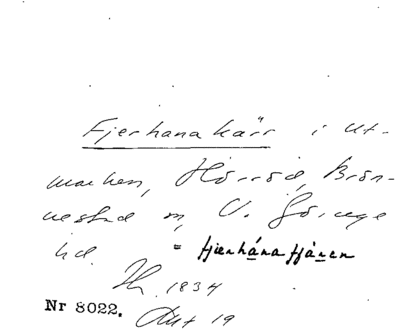 Fjerhana kärr i ut-
marken, Hörröd, Brön-
nestad sn, V. Göinge
hd. = fjærhánafjáren
Sk. 1834
Nr 8022. Akt 19